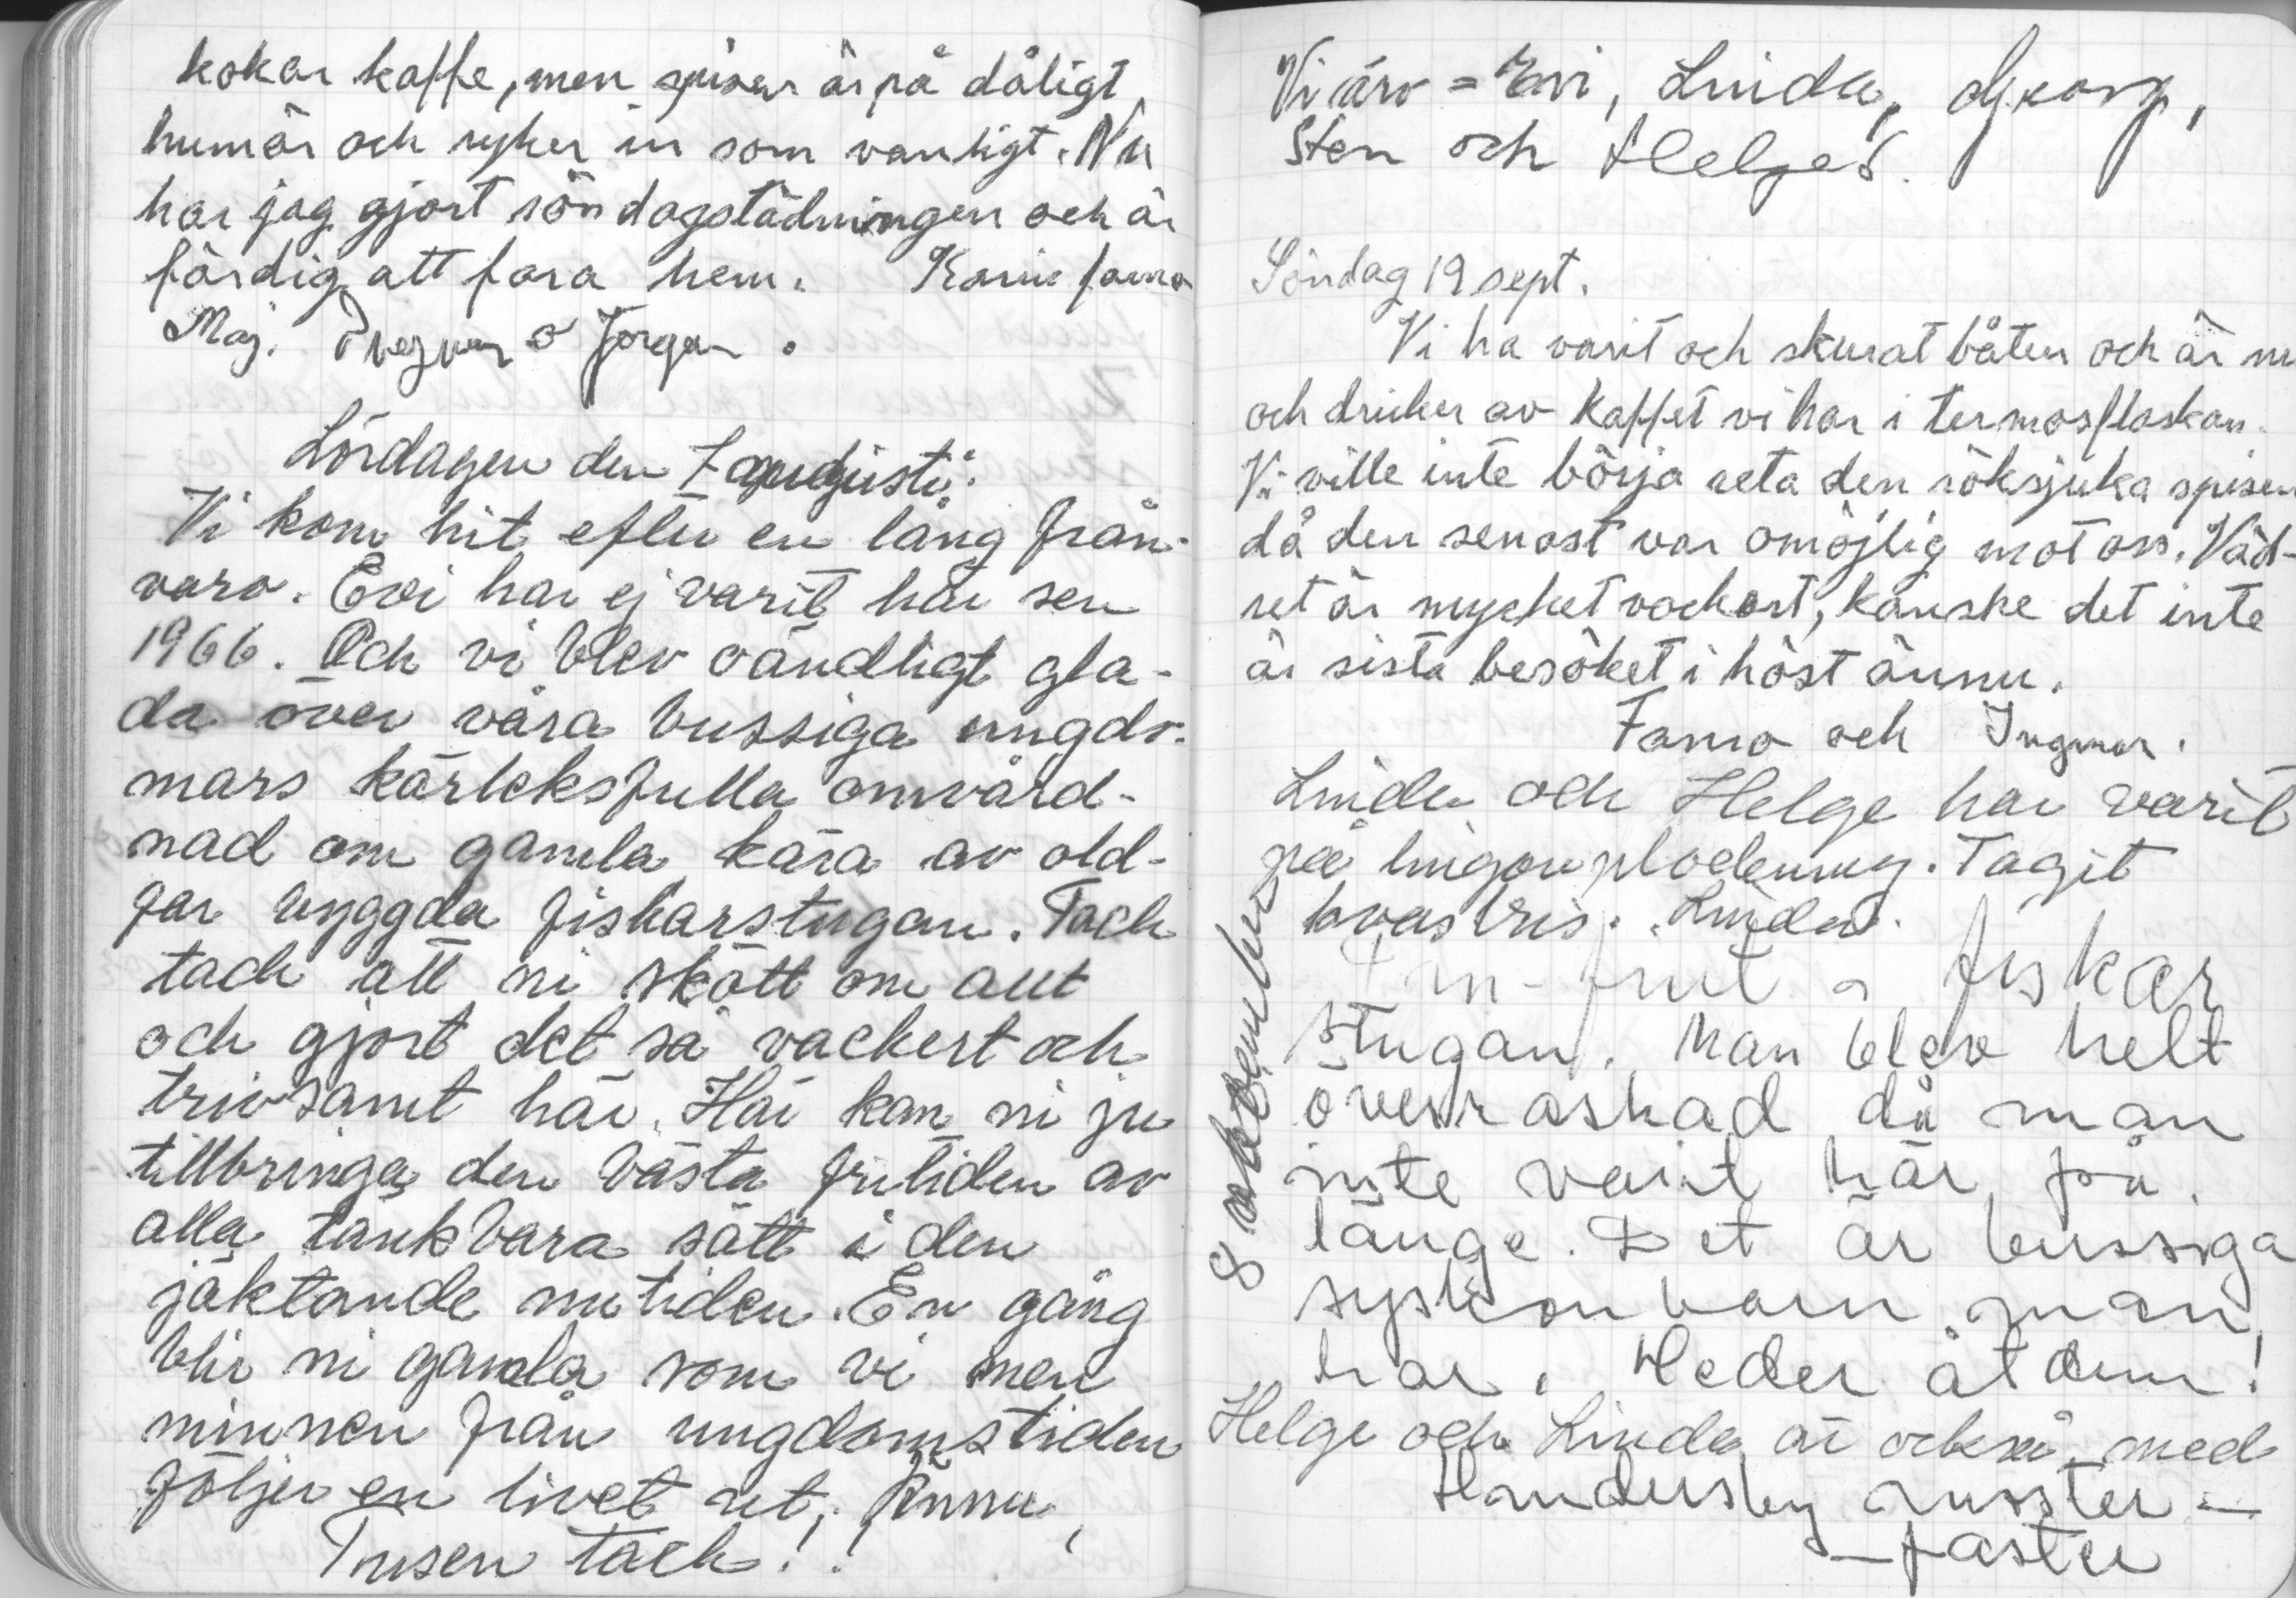 kokar kaffe, men spisen är på dåligt
humör och ryker in som vanligt. Nu
har jag gjort söndagstädningen och är
färdig att fara hem. Karin famo
Maj. Ingmar o Jörgen.
Lördagen den 7 augusti:
Vi kom hit efter en lång från-
varo. Evi har ej varit här sen
1966. Och vi blev oändligt gla-
da över våra bussiga ungdo-
mars kärleksfulla omvård-
nad om gamla kära av old-
far byggda fiskarstugan. Tack
tack att ni skött om allt
och gjort det så vackert och
trivsamt här. Här kan ni ju
tillbringa den bästa fritiden av
alla tänkbara sätt i den
jäktande nutiden. En gång
blir ni gamla som vi men
minnen från ungdomstiden
följer en livet ut. Ännu,
Tusen tack!!
Vi äro = Evi, Linda, Georg,
Sten och Helges.
Söndag 19 sept.
Vi ha varit och skurat båten och är nu
och dricker av kaffet vi har i termosflaskan.
Vi ville inte börja reta den röksjuka spisen
då den senast var omöjlig mot oss. Väd-
ret är mycket vackert, kanske det inte
är sista besöket i höst ännu.
Famo och Ingmar.
Linda och Helge har varit
på lingonplockning. Tagit
kvastris. Linda.
8 oktember
fint fiskar
stugan. Man blev helt
överraskad då man
inte varit här på
länge. Det är bussiga
syskonbarn man
har. Heder åt dem!
Helge och Linda är också med
Handersby musster –
– faster